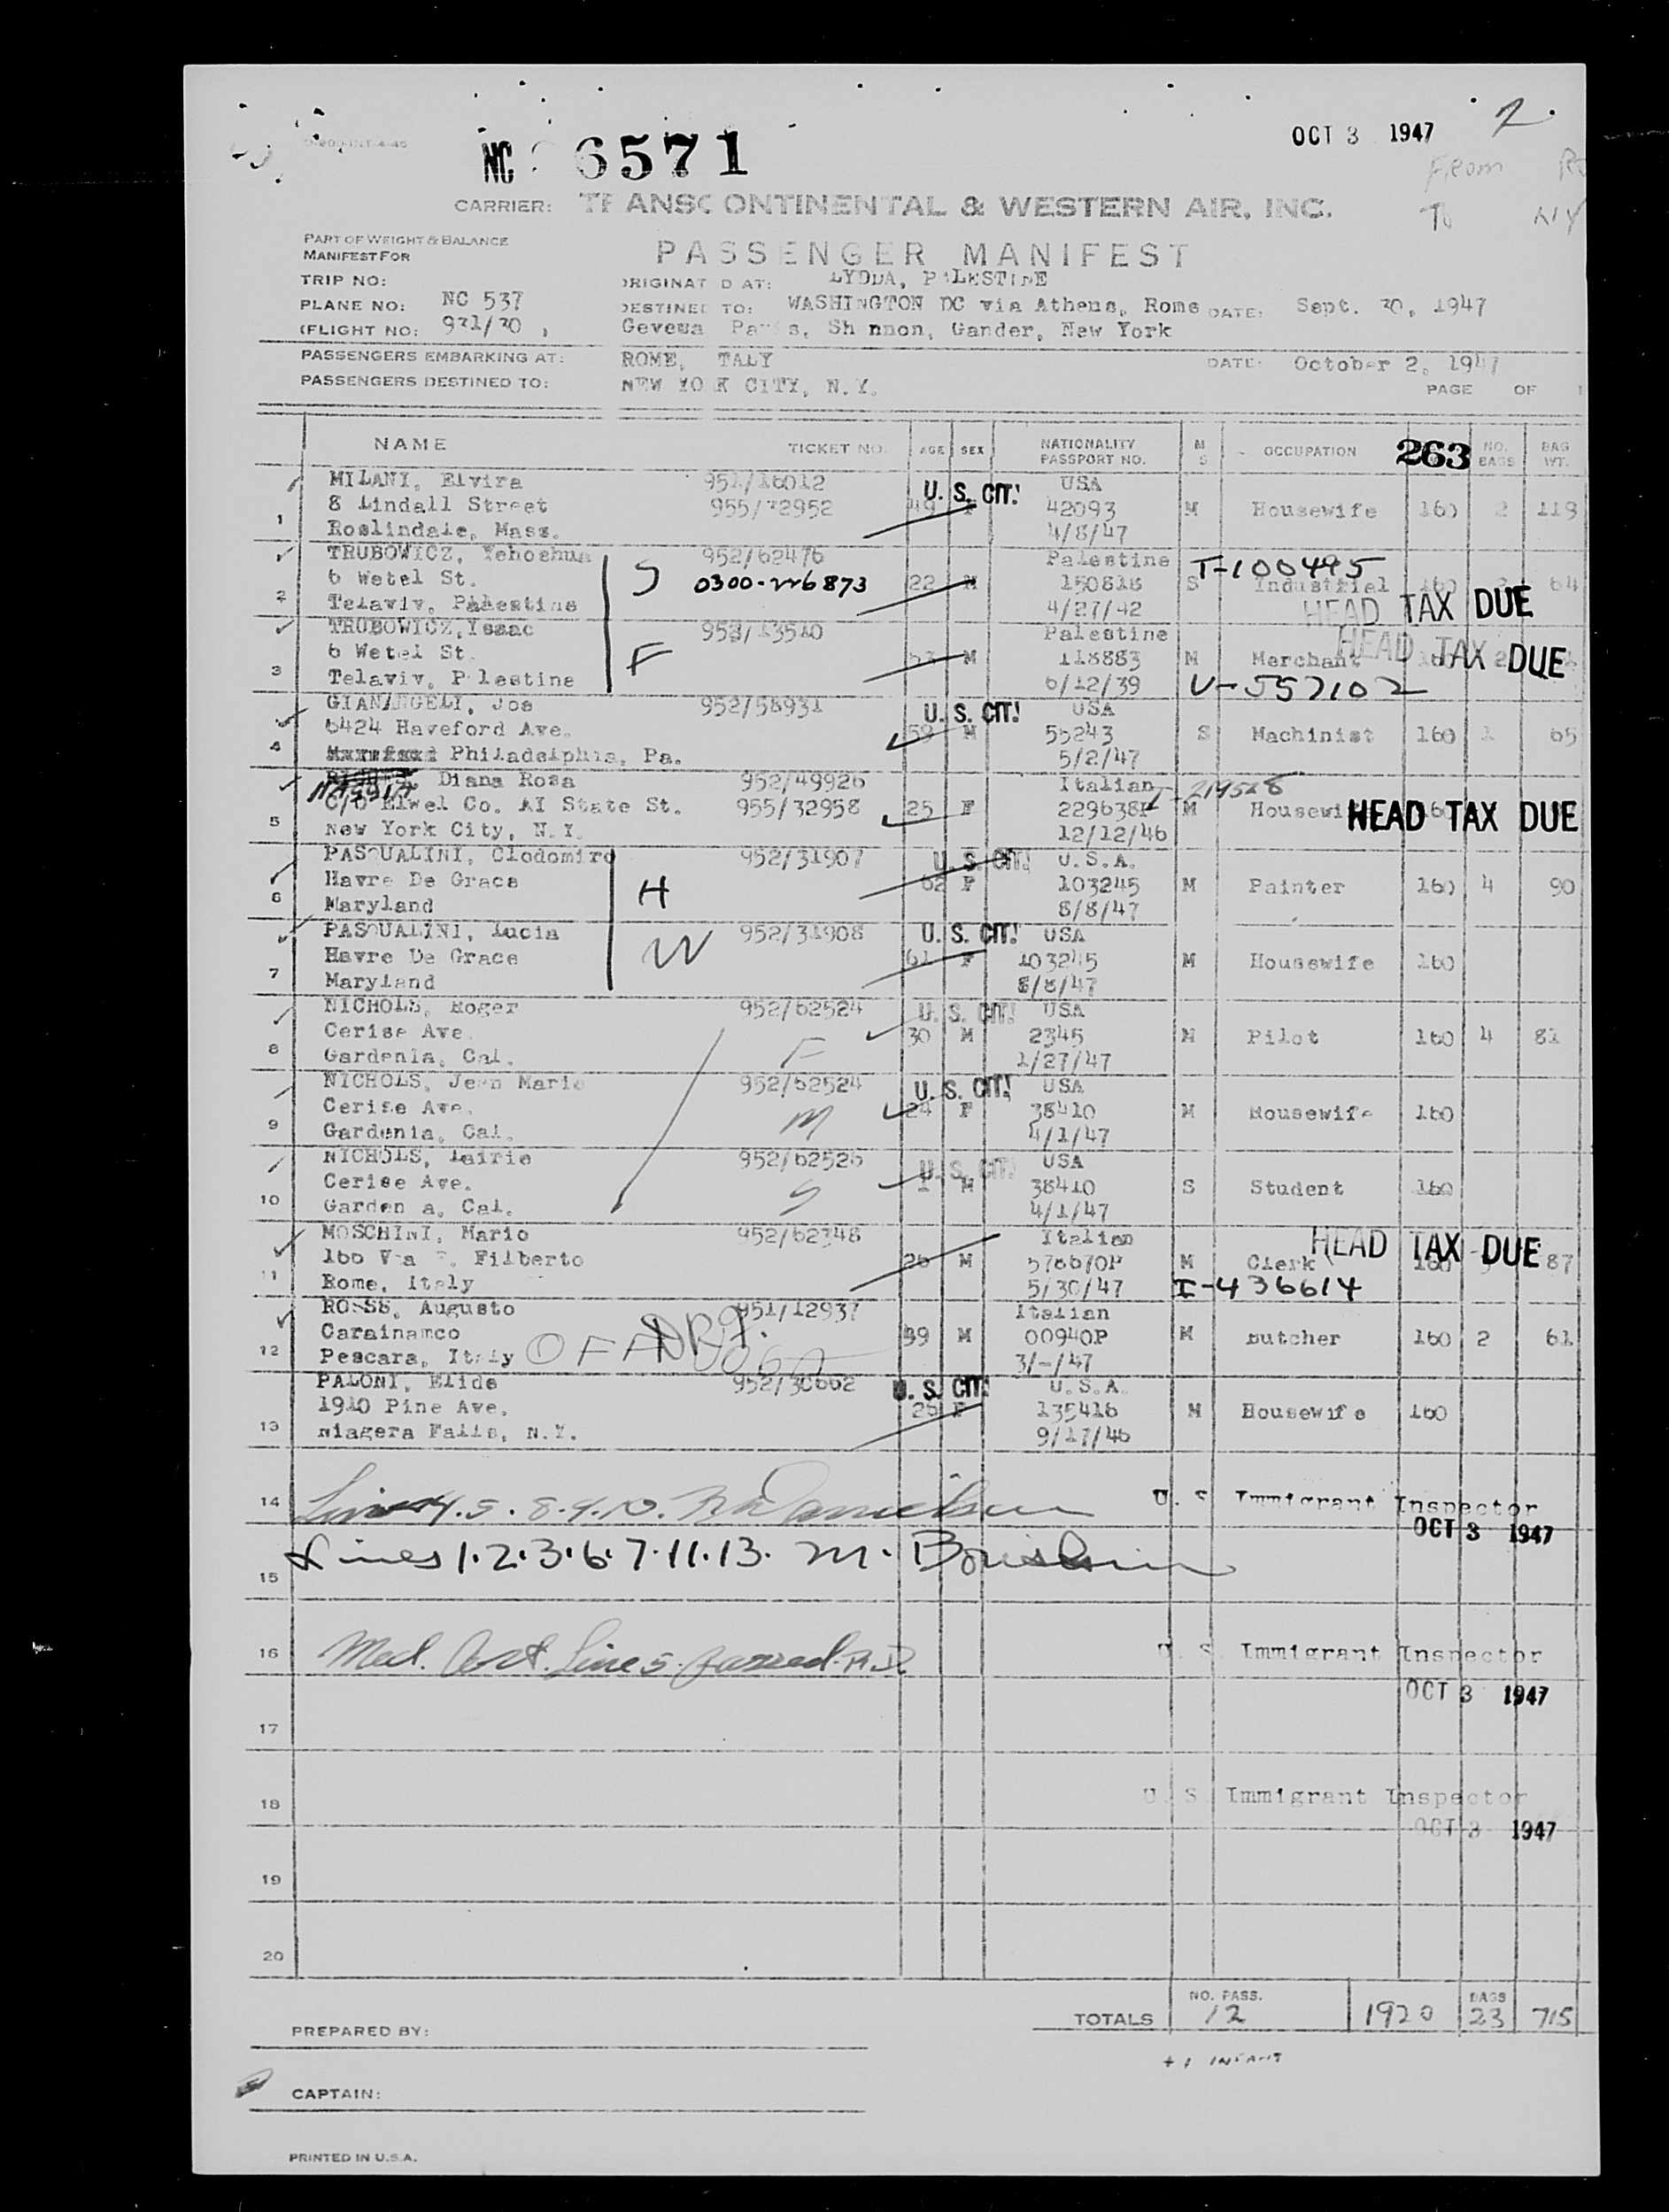 OCT 3 1947 2.
D-200-INT-4-46
NC 6571
FROM
TO NY
CARRIER: TRANSCONTINENTAL & WESTERN AIR, INC.
PART OF WEIGHT & BALANCE
MANIFEST FOR
PASSENGER MANIFEST
TRIP NO: ORIGINAT D AT: LYDDA, P LESTINE
PLANE NO: NC 537 DESTINED TO: WASHINGTON DC via Athens, Rome DATE: Sept. 30, 1947
(FLIGHT NO: 931/30 , Geveua Pa s, Sh nnon, Gander, New York
PASSENGERS EMBARKING AT: ROME, TALY DATE: October 2, 1947
PASSENGERS DESTINED TO: NEW YO K CITY, N.Y.
PAGE OF
NAME TICKET NO. AGE SEX NATIONALITY PASSPORT NO. M S OCCUPATION 263 NO. BAGS BAG WT.
MILANI, Elvira 951/16012 U. S. CIT! USA
1 8 Lindall Street 955/32952 49 F 42093 M Housewife 160 2 119
Roslindale, Mass. 4/8/47
TRUBOWICZ, Yehoshua 952/62476 Palestine T-100495
2 6 Wetel St. S 0300-226873 22 M 150818 S Industrial 160 64
Telaviv, Palestine 4/27/42 HEAD TAX DUE
TRUBOWICZ, Yssac 953/13510 Palestine HEAD TAX DUE
3 6 Wetel St. F M 118883 M Merchant 160 2
Telaviv, P lestine 6/12/39 V-557102
GIANANGELI, Joe 952/58931 U. S. CIT! USA
4 6424 Haveford Ave. 59 M 55243 S Machinist 160 1 65
Philadelphia, Pa. 5/2/47
Diana Rosa 952/49926 Italian I-219528
5 C/O Elwel Co. AI State St. 955/32958 25 F 229638P M Housewi HEAD TAX DUE
New York City, N.Y. 12/12/46
PASQUALINI, Clodomiro 952/31907 U. S. CIT! U.S.A.
6 Havre De Grace H 62 F 103245 M Painter 160 4 90
Maryland 8/8/47
PASQUALINI, Lucia 952/31908 U. S. CIT! USA
7 Havre De Grace W 61 F 103245 M Housewife 160
Maryland 8/8/47
NICHOLS, Roger 952/62524 U. S. CIT! USA
8 Cerise Ave. F 30 M 2345 M Pilot 160 4 81
Gardenia, Cal. 1/27/47
NICHOLS, Jean Marie 952/62524 U. S. CIT! USA
9 Cerise Ave. M 24 F 38410 M Housewife 160
Gardenia, Cal. 4/1/47
NICHOLS, Lairie 952/62526 U. S. CIT! USA
10 Cerise Ave. S 1 M 38410 S Student 160
Garden a, Cal. 4/1/47
MOSCHINI, Mario 952/62348 Italian HEAD TAX DUE
11 160 V a Filberto 26 M 576670P M Clerk 160 87
Rome, Italy 5/30/47 I-436614
ROSSS, Augusto 951/12937 Italian
12 Carainamco 39 M 00940P M Butcher 160 2 61
Pescara, Italy OFF 3/-/47
PALONI, Elide 952/30662 U. S. CIT! U.S.A.
13 1910 Pine Ave. 26 F 135418 M Housewife 160
Niagera Falls, N.Y. 9/17/46
14 Lines 4.5.8.9.10. R. Danielson U. S Immigrant Inspector
OCT 3 1947
15 Lines 1.2.3.6.7.11.13. M.
16 Med. Cert. Line 5. passed. R.D. U. S. Immigrant Inspector
OCT 3 1947
17
18 U. S. Immigrant Inspector
OCT 3 1947
19
20
TOTALS NO. PASS. 12 1920 BAGS 23 715
PREPARED BY:
+ 1 INFANT
CAPTAIN:
PRINTED IN U.S.A.